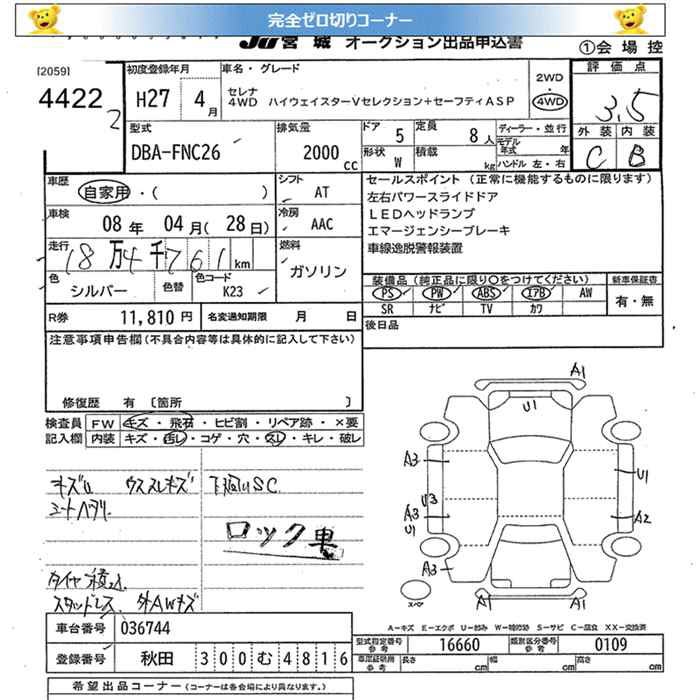 完全ゼロ切りコーナー
JU宮城 オークション出品申込書
①会場控
[2059]
4422 2
初度登録年月
H27 4月
車名・グレード
セレナ
4WD ハイウェイスターVセレクション+セーフティASP
2WD
・
4WD
評価点
3.5
外装 内装
C B
型式
DBA-FNC26
排気量
2000 cc
ドア 5
形状 W
定員 8人
積載 kg
ディーラー・並行
モデル年式 年
ハンドル 左・右
車歴
自家用・( )
シフト
AT
車検
08年 04月(28日)
冷房
AAC
走行
18万4千761km
燃料
ガソリン
色
シルバー
色替
色コード
K23
セールスポイント (正常に機能するものに限ります)
左右パワースライドドア
LEDヘッドランプ
エマージェンシーブレーキ
車線逸脱警報装置
装備品(純正品に限り○をつけてください)
新車保証書
PS PW ABS エアB AW
SR ナビ TV カワ
有・無
R券 11,810円
名変通知期限 月 日
後日品
注意事項申告欄(不具合内容等は具体的に記入して下さい)
修復歴 有 〔箇所 〕
検査員記入欄
FW キズ・飛石・ヒビ割・リペア跡・×要
内装 キズ・汚レ・コゲ・穴・スレ・キレ・破レ
キズU ウススレキズ
シートヘタリ
下廻りSC
ロック車
タイヤ積込
スタッドレス 外AWキズ
A1
U1
A3
U1
U3
A3
U1
A2
A3
スペア
A1 A1
A-キズ E-エクボ U-凹み W-補修跡 S-サビ C-腐食 XX-交換済
車台番号 036744
登録番号 秋田 300む4816
型式指定番号 参考 16660
類別区分番号 参考 0109
車庫証明用 参考 長さ cm 幅 cm 高さ cm
希望出品コーナー(コーナーは各会場により異なります。)